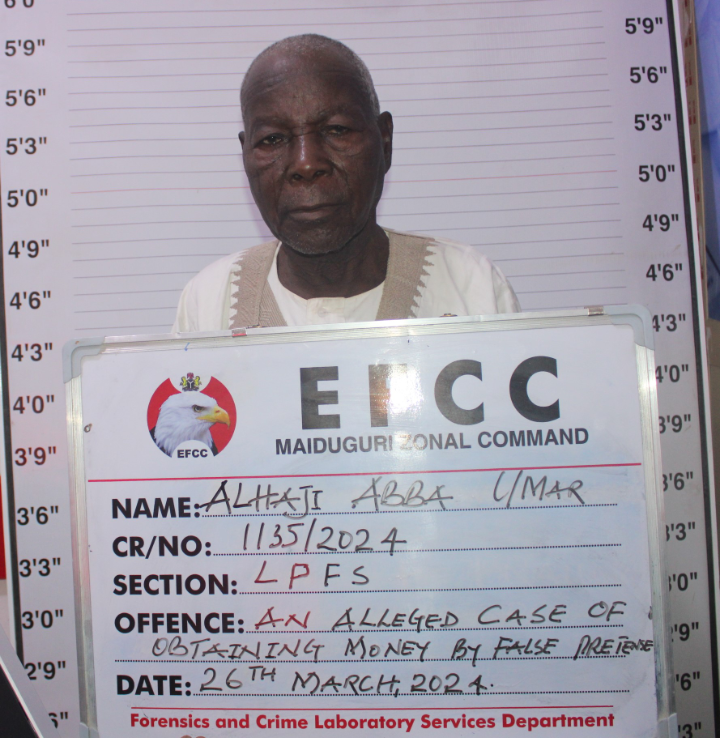 6'0"
5'9"
5'6"
5'3"
5'0"
4'9"
4'6"
4'3"
4'0"
3'9"
3'6"
3'3"
3'0"
2'9"
5'9"
5'6"
5'3"
5'0"
4'9"
4'6"
4'3"
4'0"
3'9"
3'6"
3'3"
EFCC
EFCC
MAIDUGURI ZONAL COMMAND
NAME: ALHAJI ABBA UMAR
CR/NO: 1135/2024
SECTION: LPFS
OFFENCE: AN ALLEGED CASE OF
OBTAINING MONEY BY FALSE PRETENSE
DATE: 26TH MARCH, 2024.
Forensics and Crime Laboratory Services Department